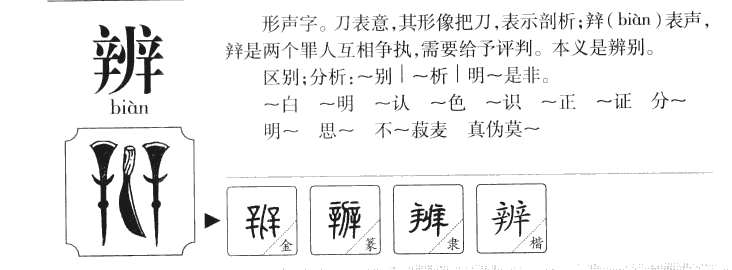 辨
biàn
形声字。刀表意,其形像把刀,表示剖析;辡(biàn)表声,
辡是两个罪人互相争执,需要给予评判。本义是辨别。
区别;分析:~别|~析|明~是非。
~白 ~明 ~认 ~色 ~识 ~正 ~证 分~
明~ 思~ 不~菽麦 真伪莫~
辨 金
辨 篆
辨 隶
辨 楷